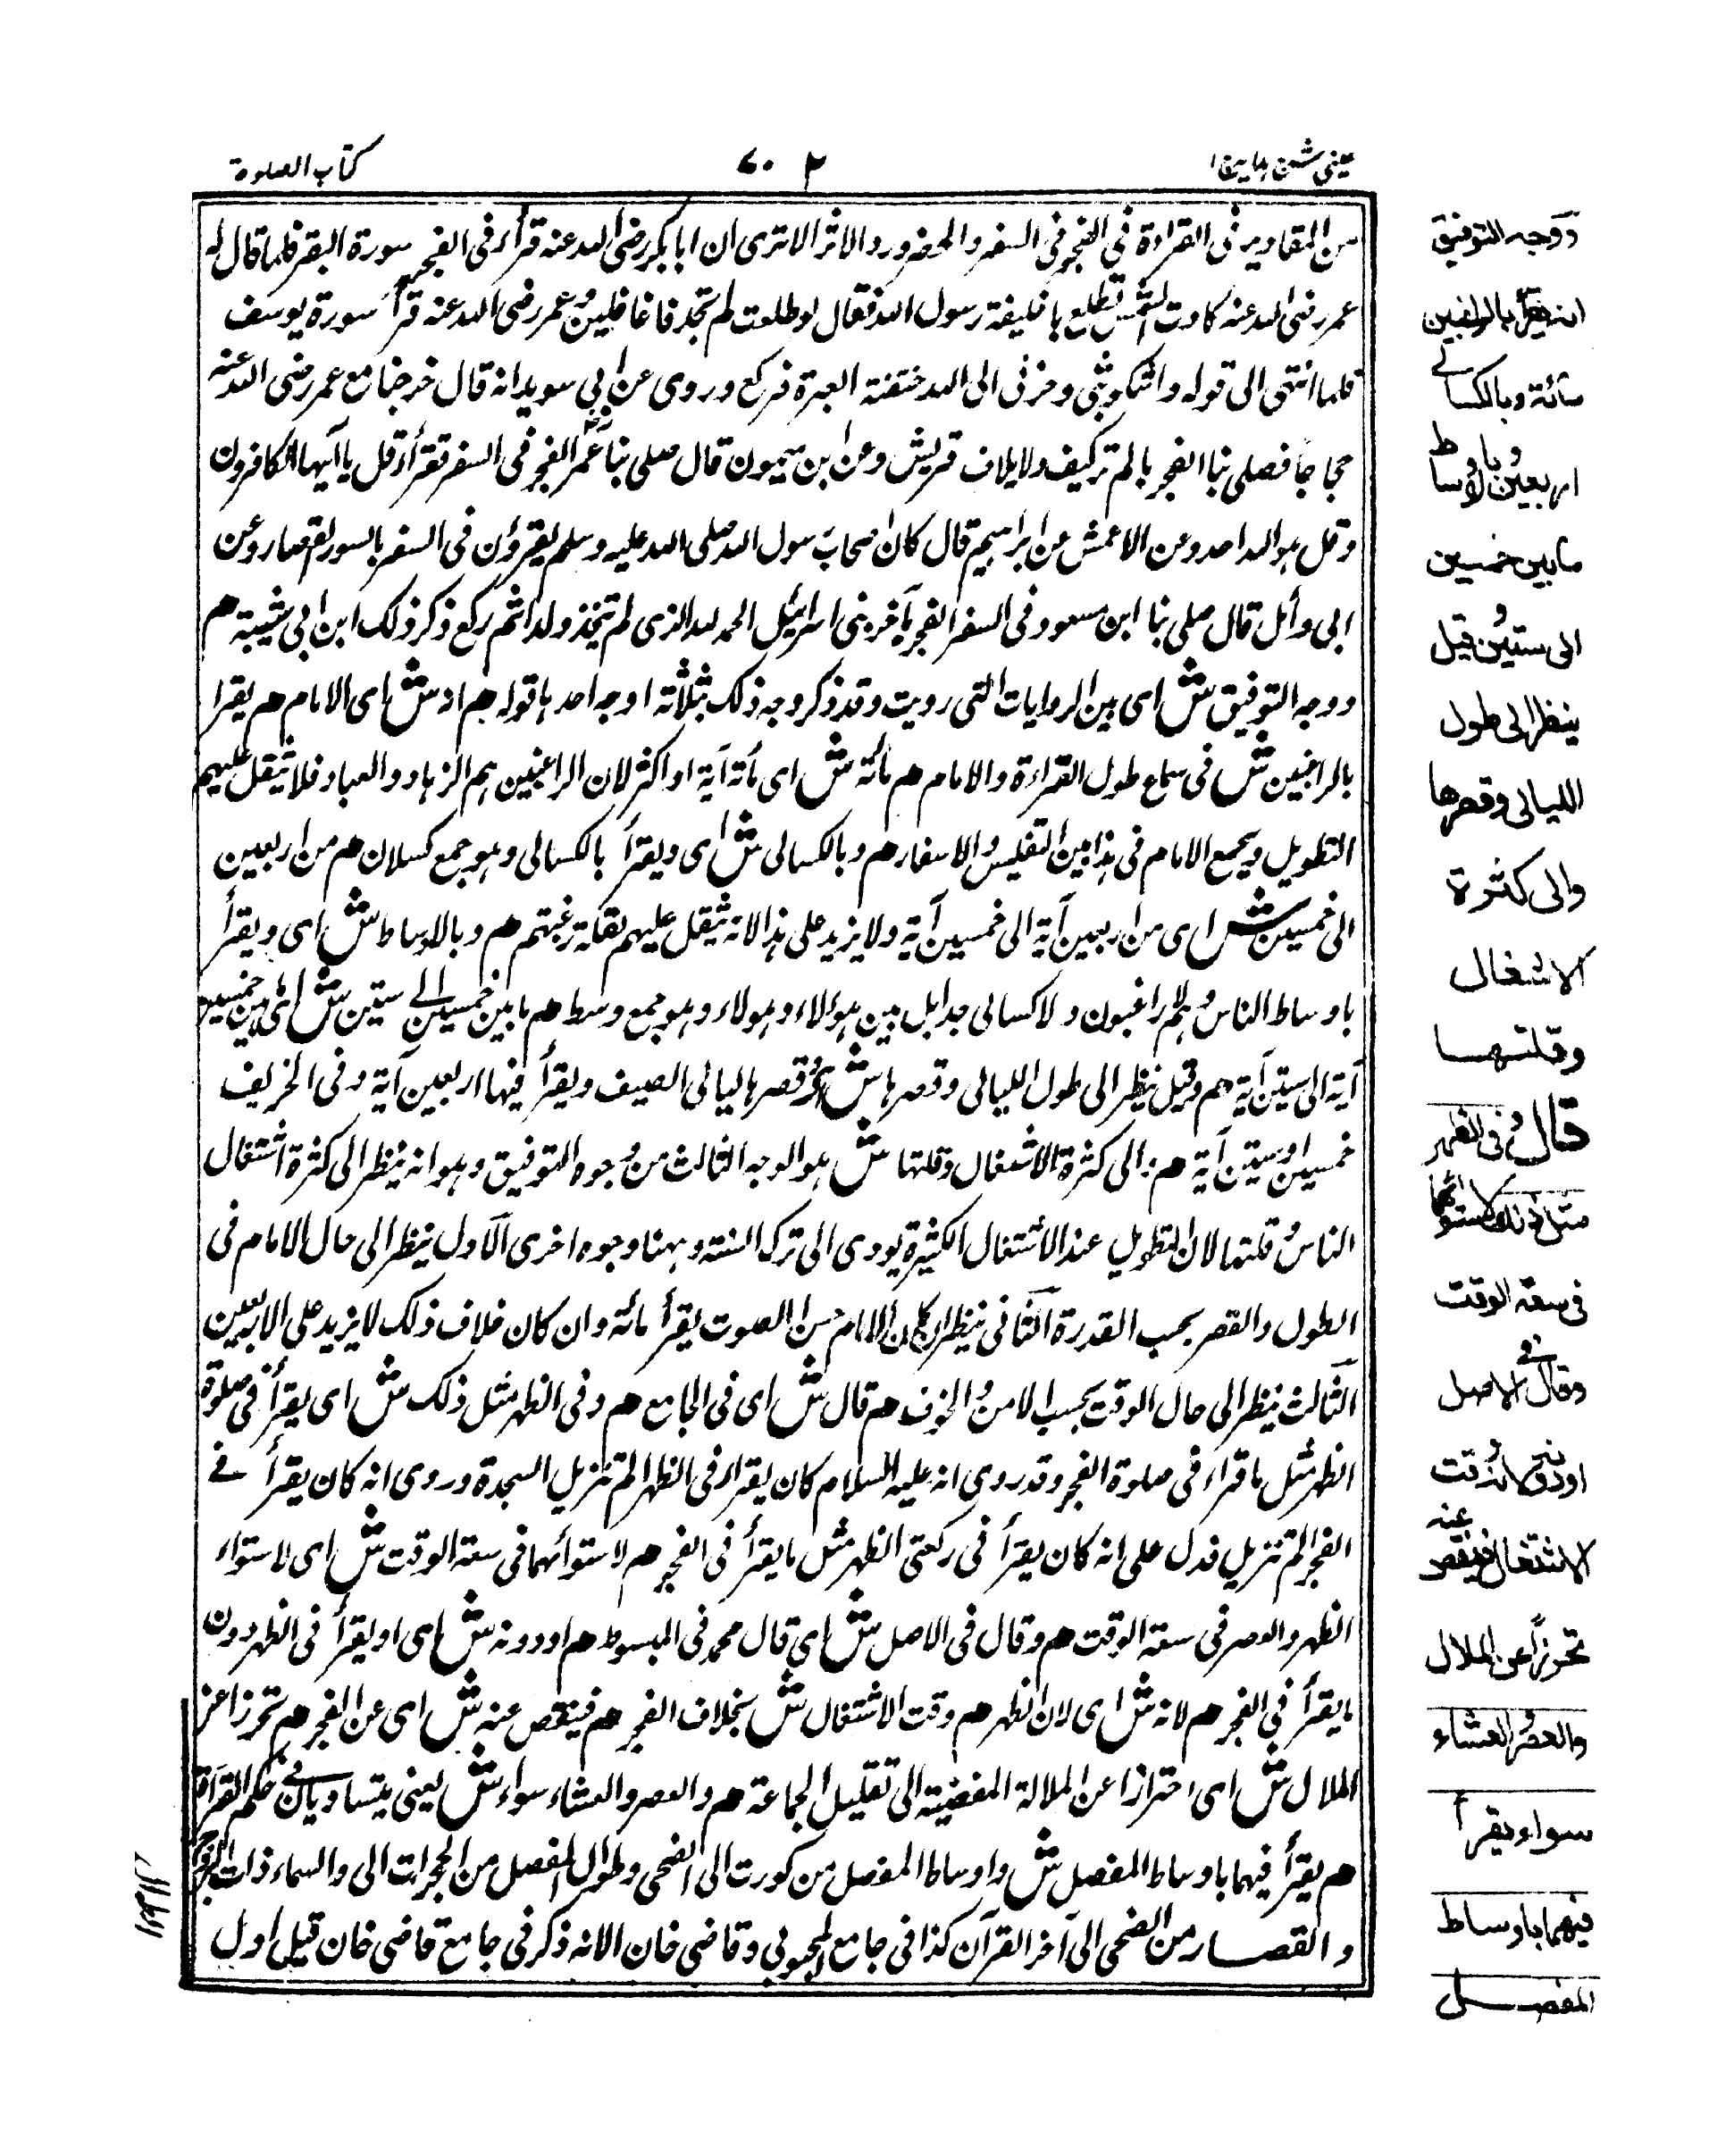 عینی شرح ہدایہ ج ۱
۷۰۲
کتاب الصلوة
من المقادیر فی القراءة فی الفجر فی السفر والحضر ورد الاثر الا تری ان ابا بکر رضی الله عنه قرأ فی الفجر سورة البقر فلما قال له
عمر رضی الله عنه کادت الشمس تطلع یا خلیفة رسول الله فقال لو طلعت لم تجدنا غافلین وعمر رضی الله عنه قرأ سورة یوسف
فلما انتهی الی قوله واشکو بثی وحزنی الی الله خنقته العبرة فرکع وروی عن ابی سوید انه قال خرجنا مع عمر رضی الله عنه
حجاجا فصلی بنا الفجر بالم تر کیف ولایلاف قریش وعن ابن میمون قال صلی بنا عمر الفجر فی السفر فقرأ قل یا ایها الکافرون
وقل هو الله احد وعن الاعمش عن ابراهیم قال کان اصحاب رسول الله صلی الله علیه وسلم یقرؤن فی السفر بالسور القصار وعن
ابی وائل قال صلی بنا ابن مسعود فی السفر الفجر بآخر بنی اسرائیل الحمد لله الذی لم یتخذ ولدا ثم رکع ذکر ذلک ابن ابی شیبة هم
ووجه التوفیق ش ای بین الروایات التی رویت وقد ذکر وجه ذلک بثلاثة اوجه احدها قوله هم انه ش ای الامام هم یقرا
بالراغبین ش فی سماع طول القراءة والامام هم مائة ش ای مأة آیة او اکثر لان الراغبین هم الزهاد والعباد فلا یثقل علیهم
التطویل ویجمع الامام فی هذا بین التغلیس والاسفار هم وبالکسالی ش ای ویقرأ بالکسالی وهو جمع کسلان هم من اربعین
الی خمسین ش ای من اربعین آیة الی خمسین آیة ولا یزید علی هذا لانه یثقل علیهم لقلة رغبتهم هم وبالاوساط ش ای ویقرأ
باوساط الناس وهم لا راغبون ولا کسالی جدا بل بین هؤلاء وهؤلاء وهو جمع وسط هم ما بین خمسین الی ستین ش ای ما بین خمسین
آیة الی ستین آیة هم وقیل ینظر الی طول اللیالی وقصرها ش قصرها لیالی الصیف ویقرأ فیها اربعین آیة وفی الخریف
خمسین او ستین آیة هم والی کثرة الاشغال وقلتها ش هو الوجه الثالث من وجوه التوفیق وهو انه ینظر الی کثرة اشتغال
الناس وقلتها لان التطویل عند الاشتغال الکثیرة یودی الی ترک السنة وههنا وجوه اخری الاول ینظر الی حال الامام فی
الطول والقصر بحسب القدرة الثانی ینظر ان کان الامام حسن الصوت یقرأ مائة وان کان خلاف ذلک لا یزید علی الاربعین
الثالث ینظر الی حال الوقت بحسب الامن والخوف هم قال ش ای فی الجامع هم وفی الظهر مثل ذلک ش ای یقرأ فی صلوة
الظهر مثل ما قراء فی صلوة الفجر وقد روی انه علیه السلام کان یقراء فی الظهر الم تنزیل السجدة وروی انه کان یقرأ فی
الفجر الم تنزیل فدل علی انه کان یقرأ فی رکعتی الظهر مثل ما یقرأ فی الفجر هم لاستوائهما فی سعة الوقت ش ای لاستواء
الظهر والعصر فی سعة الوقت هم وقال فی الاصل ش ای قال محمد فی المبسوط هم او دونه ش ای او یقرأ فی الظهر دون
ما یقرأ فی الفجر هم لانه ش ای لان الظهر هم وقت الاشتغال ش بخلاف الفجر هم فینقص عنه ش ای عن الفجر هم تحرزا عن
الملال ش ای احترازا عن الملالة المفضیة الی تقلیل الجماعة هم والعصر والعشاء سواء ش یعنی یتساویان فی حکم القراءة
هم یقرأ فیهما باوساط المفصل ش واوساط المفصل من کورت الی الضحی وطوال المفصل من الحجرات الی والسماء ذات البروج
والقصار من الضحی الی آخر القرآن کذا فی جامع المحبوبی وقاضی خان الا انه ذکر فی جامع قاضی خان قیل اول
ووجه التوفیق
انه یقرأ بالراغبین
مائة وبالکسالی
اربعین وبالاوساط
ما بین خمسین
الی ستین وقیل
ینظر الی طول
اللیالی وقصرها
والی کثرة
الاشغال
وقلتها
قال وفی الظهر
مثل ذلک لاستوائهما
فی سعة الوقت
وقال فی الاصل
او دونه لانه وقت
الاشتغال فینقص عنه
تحرزا عن الملال
والعصر والعشاء
سواء یقرأ
فیهما باوساط
المفصل